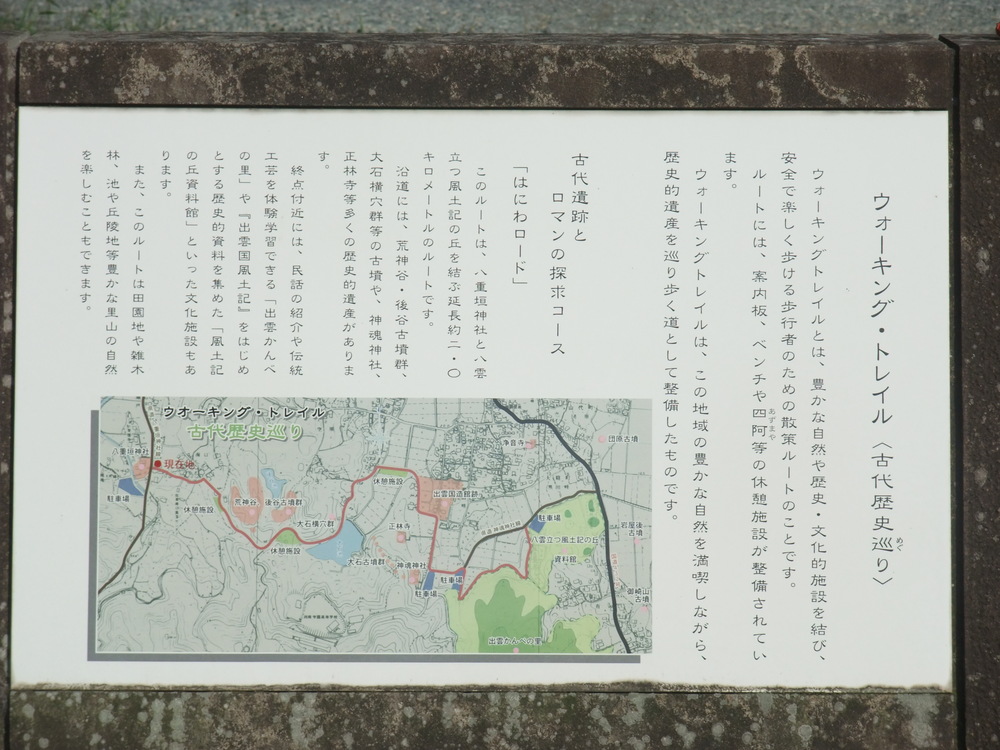 ウォーキング・トレイル〈古代歴史巡り〉
めぐ
ウォーキングトレイルとは、豊かな自然や歴史・文化的施設を結び、
安全で楽しく歩ける歩行者のための散策ルートのことです。
ルートには、案内板、ベンチや四阿等の休憩施設が整備されてい
あずまや
ます。
ウォーキングトレイルは、この地域の豊かな自然を満喫しながら、
歴史的遺産を巡り歩く道として整備したものです。
古代遺跡と
ロマンの探求コース
「はにわロード」
このルートは、八重垣神社と八雲
立つ風土記の丘を結ぶ延長約二・〇
キロメートルのルートです。
沿道には、荒神谷・後谷古墳群、
大石横穴群等の古墳や、神魂神社、
正林寺等多くの歴史的遺産がありま
す。
終点付近には、民話の紹介や伝統
工芸を体験学習できる「出雲かんべ
の里」や『出雲国風土記』をはじめ
とする歴史的資料を集めた「風土記
の丘資料館」といった文化施設もあ
ります。
また、このルートは田園地や雑木
林、池や丘陵地等豊かな里山の自然
を楽しむこともできます。
ウオーキング・トレイル
古代歴史巡り
八重垣神社
現在地
駐車場
休憩施設
荒神谷
後谷古墳群
大石横穴群
休憩施設
大石古墳群
休憩施設
正林寺
神魂神社
駐車場
駐車場
出雲国造館跡
浄音寺
団原古墳
駐車場
八雲立つ風土記の丘
資料館
岩屋後
古墳
御崎山
古墳
出雲かんべの里